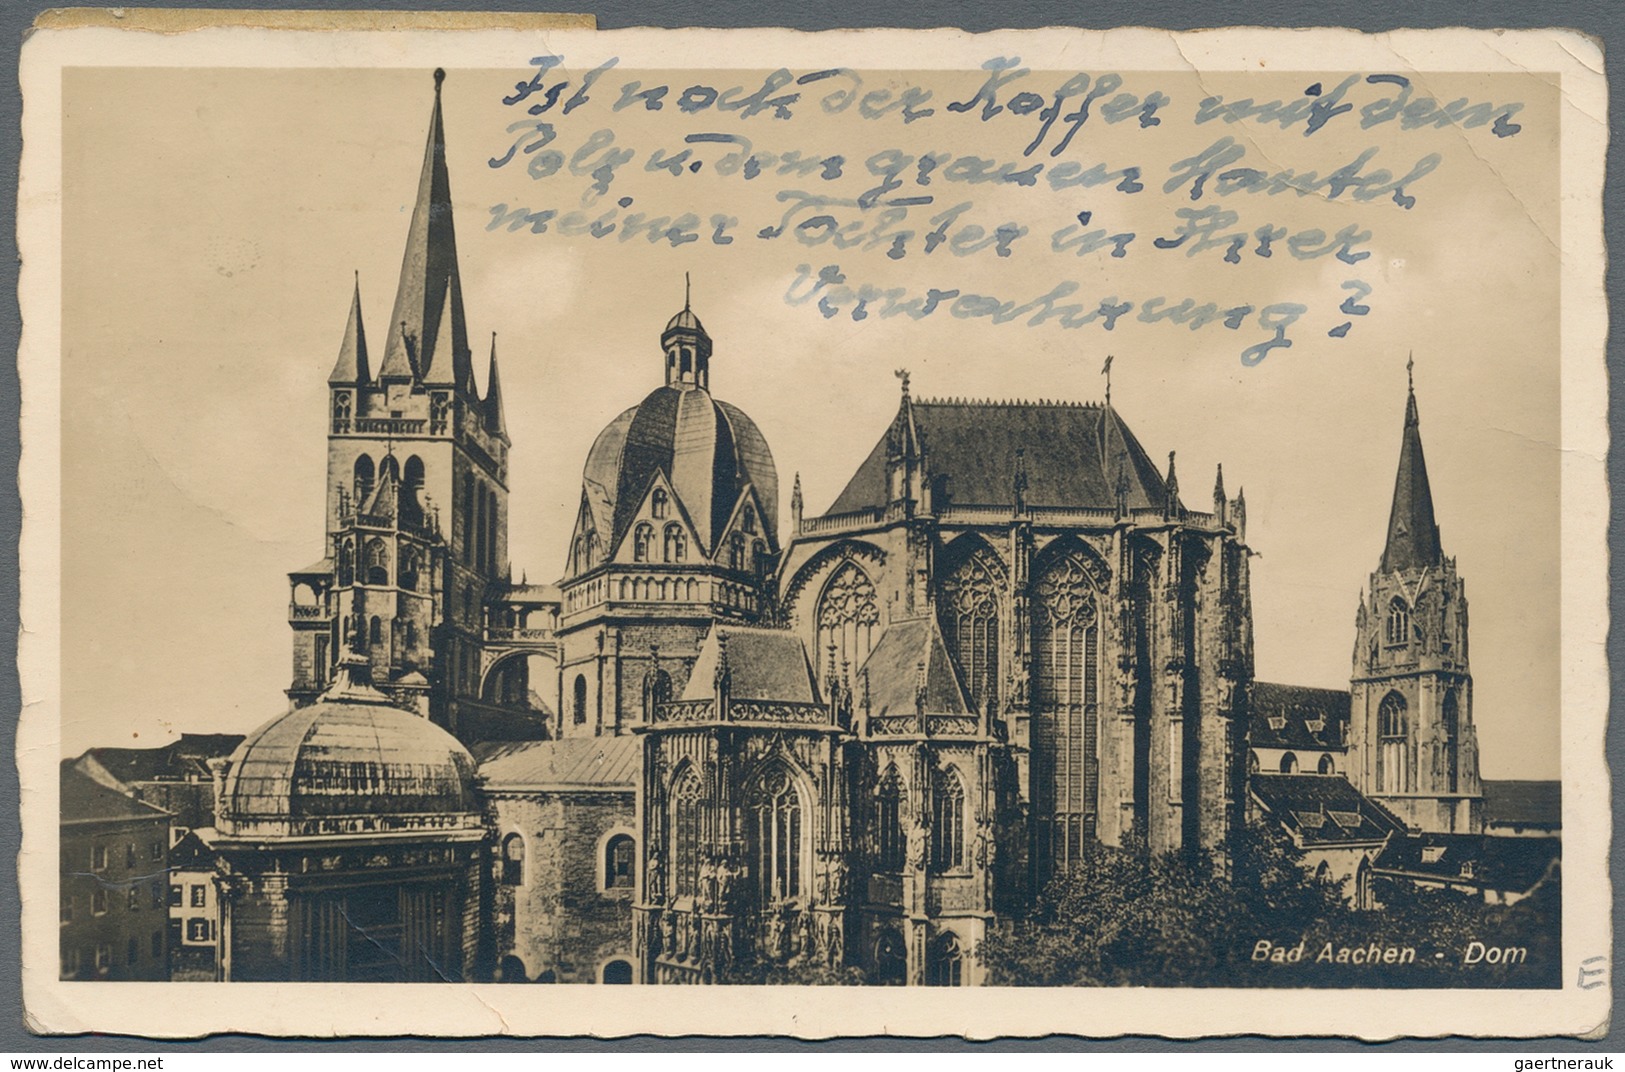 Ist noch der Koffer mit dem
Pelz u. dem grauen Mantel
meiner Tochter in Ihrer
Verwahrung?
Bad Aachen - Dom
E
www.delcampe.net
gaertnerauk